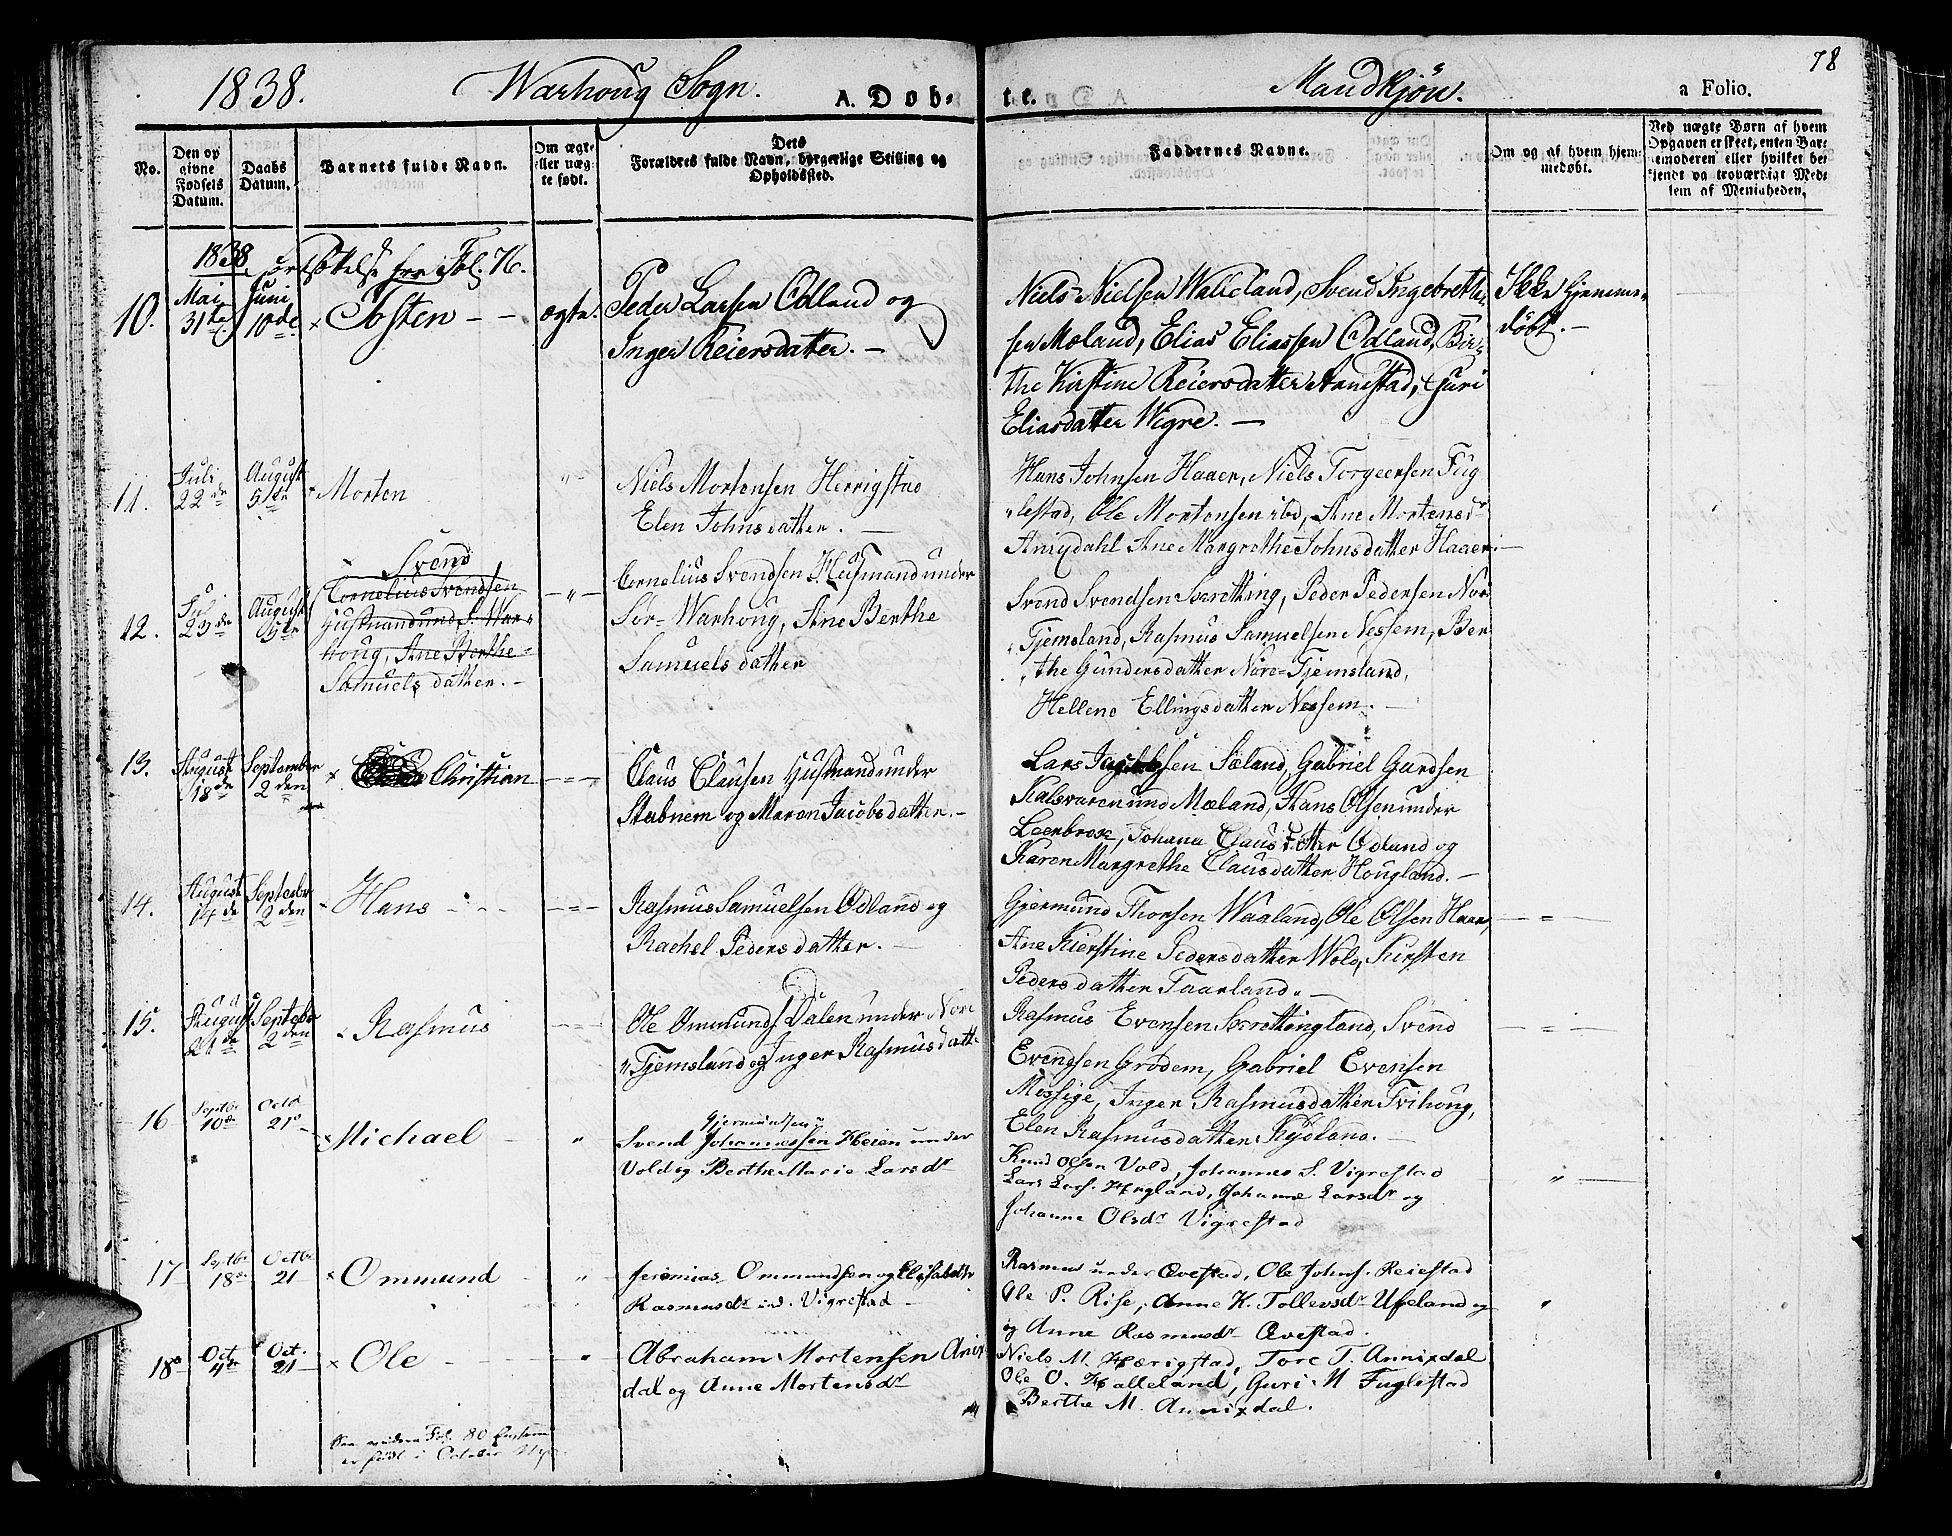 78
1838. Warhoug Sogn. A. Døb- te. Mandkjøn. a Folio.
No. Den opgivne Fødsels Datum. Daabs Datum. Barnets fulde Navn. Om ægte eller uægte født. Dets Forældres fulde Navn, borgerlige Stilling og Opholdssted. Faddernes Navne. Om og af hvem hjemmedøbt. Ved uægte Børn af hvem Opgaven er skeet, enten Barnemoderen eller hvilket bekjendt og troværdigt Medlem af Menigheden.
1838. Fortsættelse fra Fol. 76.
10. Mai 31te Juni 10de × Tosten - - ægte. Peder Larsen Odland og
Inger Reiersdatter. -
Niels Nielsen Walieland, Svend Ingebrethsen
Moland, Elias Eliassen Odland, Birthe
Kirstine Reiersdatter Aanestad, Guri
Eliasdatter Wigre. -
Ikke hjemmedøbt. -
11. Juli 22de August 5te Morten " Niels Mortensen Herrigstad
Elen Johnsdatter. -
Hans Johnsen Haaer, Niels Torgersen Fuglestad,
Ole Mortensen ibd, Ane Mortensdr
Anixdahl Ane Margrethe Johnsdatter Haaer -
12. Juli 23de August 5te × Svend
Cornelius Svendsen
Husmand und. S. Warhoug,
Ane Berthe
Samuelsdatter. -
- " - Cornelius Svendsen Husmand under
Sør-Warhoug, Ane Berthe
Samuelsdatter
Svend Svendsen Skretting, Peder Pedersen Nor
Tjemsland, Rasmus Samuelsen Nessem, Berthe
Gundersdatter Nore-Tjemsland,
Hellene Ellingsdatter Nessem. -
13. August 18de September 2den × Christian - = - Claus Clausen Husmand under
Stabnem og Maren Jacobsdatter. -
Lars Søland, Gabriel Gundsen
Kalsvaren und Mæland, Hans Olsen under
Leerbrox, Johana Clausdatter Odland og
Karen Margrethe Clausdatter Hougland. -
14. August 14de Septebr 2den Hans - - - = - Rasmus Samuelsen Odland og
Rachel Pedersdatter. -
Gjermund Thorsen Waaland, Ole Olsen Haar,
Ane Kierstine Pedersdatter Wold, Kirsten
Pedersdatter Taarland. -
- = -
15. August 21de Septebr 2den Rasmus - = - Ole Ommunds Dalen under Nore
Tjemsland og Inger Rasmusdatt.
Rasmus Evensen Skrettingland, Svend
Evendsen Grødem, Gabriel Evensen
Mossige, Inger Rasmusdatter Tvihoug,
Elen Rasmusdatter Kydland. -
- = -
16 Septbr 10de Octbr 21de × Michael - "
Gjermundsen
Svend Johannessen Heien under
Vold og Berthe Marie Larsdr
Knud Olsen Vold, Johannes S. Vigrestad
Lars Larss. Hegland, Johanne Larsdr og
Johanne Olsdr Vigrestad
"
17 Septbr 18de Octbr 21 × Ommund " Jeremias Ommundsen og Elisabeth
Rasmusdr ind. Vigrestad -
Rasmus under Ævestad, Ole Johns. Reiestad
Ole P. Rise, Anne K. Tollevsdr Ueland og
og Anne Rasmusdr Ævestad.
"
18 Oct. 4de Oct. 21 × Ole - " Abraham Mortensen Anixdal
og Anne Mortensdr
Niels M. Hærigstad, Tore T. Annixdal
Ole O. Halleland, Guri M Fuglestad
Berthe M. Annixdal.
"
Fol. 80
er født i October